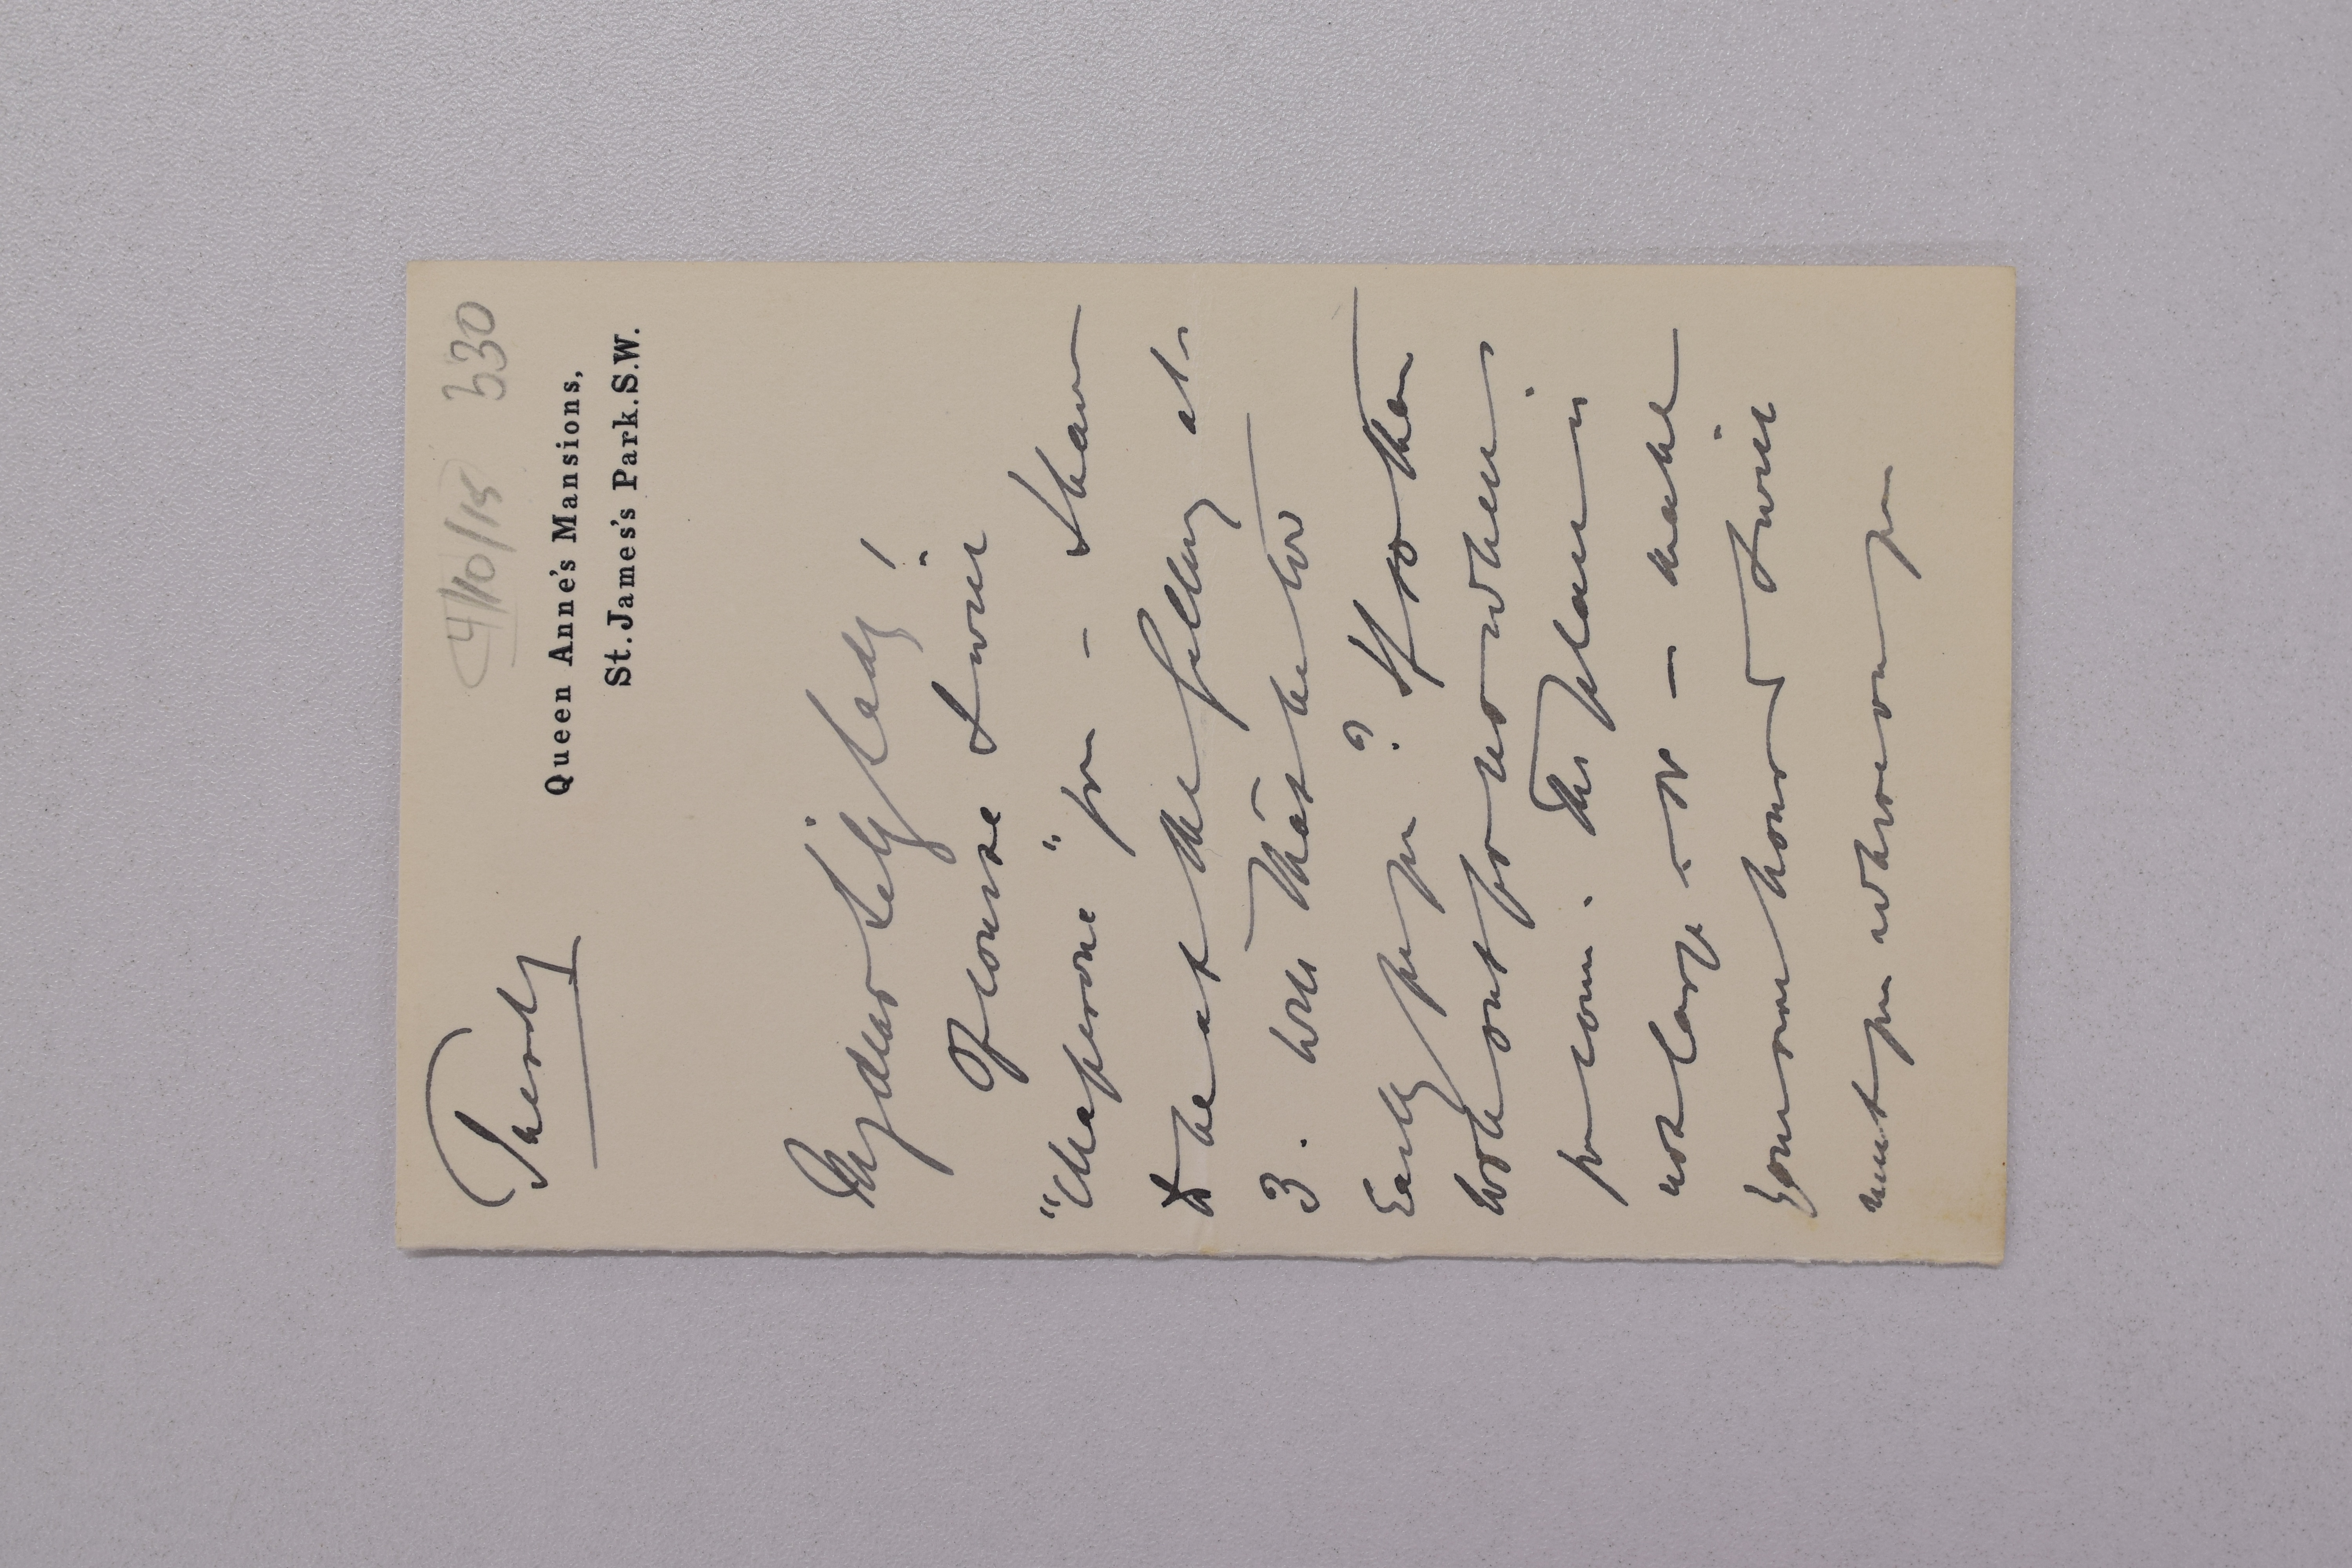 Thursdy
4/10/15 530
Queen Anne's Mansions,
St. James's Park. S.W.
My dear Lily lady!
Of course I will
"chaperone" you – I have
to be at the gallery at
3. Will that be too
Early for you? If so then
look out for us when
you come. The place is
not large is it – make
your own hour & I will
meet you whenever you